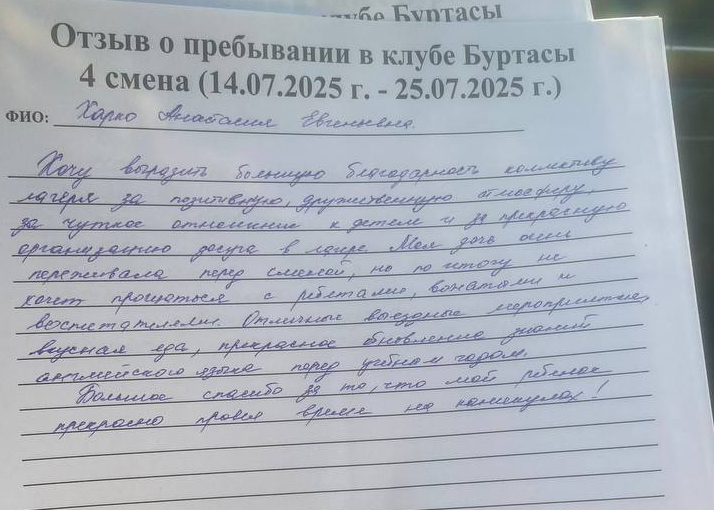 клубе Буртасы
Отзыв о пребывании в клубе Буртасы
4 смена (14.07.2025 г. - 25.07.2025 г.)
ФИО: Харко Анастасия Евгеньевна.
Хочу выразить большую благодарность коллективу
лагеря за позитивную, дружественную атмосферу,
за чуткое отношение к детям и за прекрасную
организацию досуга в лагере. Моя дочь очень
переживала перед сменой, но по итогу не
хочет прощаться с ребятами, вожатыми и
воспитателями. Отличные выездные мероприятия,
вкусная еда, прекрасное обновление знаний
английского языка перед учебным годом.
Большое спасибо за то, что мой ребенок
прекрасно провел время на каникулах!